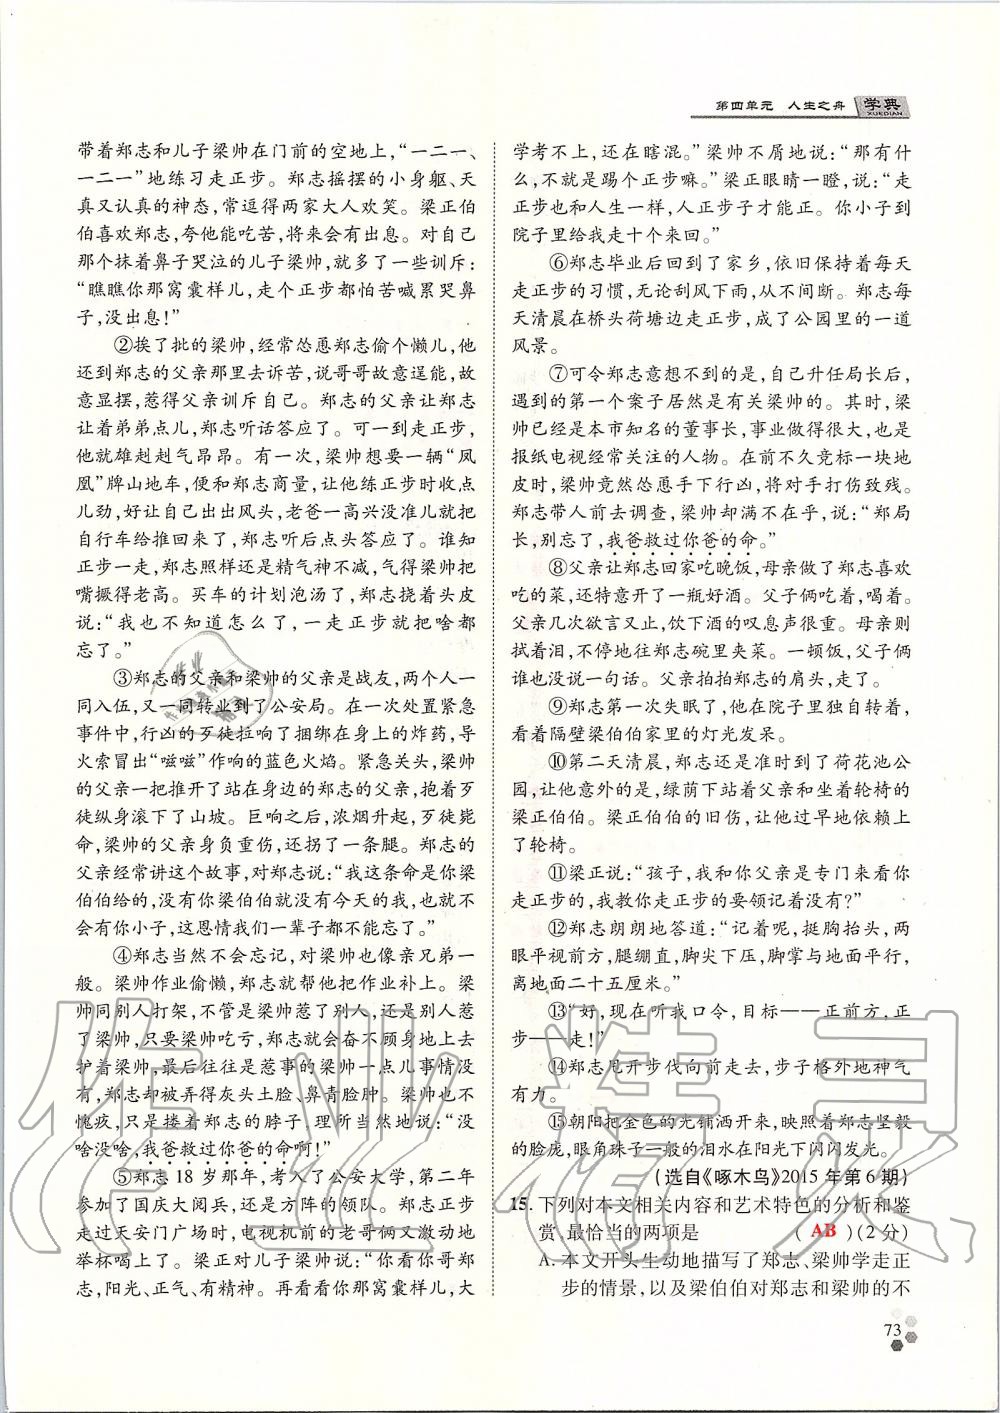 第四单元 人生之舟 学典
XUEDIAN
带着郑志和儿子梁帅在门前的空地上，“一二一、
一二一”地练习走正步。郑志摇摆的小身躯、天
真又认真的神态，常逗得两家大人欢笑。梁正伯
伯喜欢郑志，夸他能吃苦，将来会有出息。对自己
那个抹着鼻子哭泣的儿子梁帅，就多了一些训斥：
“瞧瞧你那窝囊样儿，走个正步都怕苦喊累哭鼻
子，没出息！”
②挨了批的梁帅，经常怂恿郑志偷个懒儿，他
还到郑志的父亲那里去诉苦，说哥哥故意逞能，故
意显摆，惹得父亲训斥自己。郑志的父亲让郑志
让着弟弟点儿，郑志听话答应了。可一到走正步，
他就雄赳赳气昂昂。有一次，梁帅想要一辆“凤
凰”牌山地车，便和郑志商量，让他练正步时收点
儿劲，好让自己出出风头，老爸一高兴没准儿就把
自行车给推回来了，郑志听后点头答应。谁知
正步一走，郑志照样还是精气神不减，气得梁帅把
嘴撅得老高。买车的计划泡汤了，郑志挠着头皮
说：“我也不知道怎么了，一走正步就把啥都
忘了。”
③郑志的父亲和梁帅的父亲是战友，两个人一
同入伍，又一同转业到了公安局。在一次处置紧急
事件中，行凶的歹徒拉响了捆绑在身上的炸药，导
火索冒出“嗞嗞”作响的蓝色火焰。紧急关头，梁帅
的父亲一把推开了站在身边的郑志的父亲，抱着歹
徒纵身滚下了山坡。巨响之后，浓烟升起，歹徒毙
命，梁帅的父亲身负重伤，还搭上了一条腿。郑志的
父亲经常讲这个故事，对郑志说：“我这条命是你梁
伯伯给的，没有你梁伯伯就没有今天的我，也就不会
有你小子，这恩情我们一辈子都不能忘了。”
④郑志当然不会忘记，对梁帅也像亲兄弟一
般。梁帅作业偷懒，郑志就帮他把作业补上。梁
帅同别人打架，不管是梁帅惹了别人，还是别人惹
了梁帅，只要梁帅吃亏，郑志就会奋不顾身地上去
护着梁帅，最后往往是惹事的梁帅一点儿事情没
有，郑志却被弄得灰头土脸、鼻青脸肿。梁帅也不
愧疚，只是搂着郑志的脖子，理所当然地说：“没
啥没啥，我爸救过你爸的命啊！”
⑤郑志 18 岁那年，考入了公安大学，第二年
参加了国庆大阅兵，还是方阵的领队。郑志正步
走过天安门广场时，电视机前的老哥俩又激动地
举杯喝上了。梁正对儿子梁帅说：“你看看你哥郑
志，阳光、正气、有精神。再看看你那窝囊样儿，大
学考不上，还在瞎混。”梁帅不屑地说：“那有什
么，不就是踢个正步嘛。”梁正眼睛一瞪，说：“走
正步也和人生一样，人正步子才能正。你小子到
院子里给我走十个来回。”
⑥郑志毕业后回到了家乡，依旧保持着每天
走正步的习惯，无论刮风下雨，从不间断。郑志每
天清晨在桥头荷塘边走正步，成了公园里的一道
风景。
⑦可令郑志意想不到的是，自己升任局长后，
遇到的第一个案子居然是有关梁帅的。其时，梁
帅已经是本市知名的董事长，事业做得很大，也是
报纸电视经常关注的人物。在前不久竞标一块地
皮时，梁帅竟然怂恿手下行凶，将对手打伤致残。
郑志带人前去调查，梁帅却满不在乎，说：“郑局
长，别忘了，我爸救过你爸的命。”
⑧父亲让郑志回家吃晚饭，母亲做了郑志喜欢
吃的菜，还特意开了一瓶好酒。父子俩吃着，喝着。
父亲几次欲言又止，饮下酒的叹息声很重。母亲则
拭着泪，不停地往郑志碗里夹菜。一顿饭，父子俩
谁也没说一句话。父亲拍拍郑志的肩头，走了。
⑨郑志第一次失眠了，他在院子里独自转着，
看着隔壁梁伯伯家里的灯光发呆。
⑩第二天清晨，郑志还是准时到了荷花池公
园，让他意外的是，绿荫下站着父亲和坐着轮椅的
梁正伯伯。梁正伯伯的旧伤，让他过早地依赖上
了轮椅。
⑪梁正说：“孩子，我和你父亲是专门来看你
走正步的，我教你走正步的要领记着没有？”
⑫郑志朗朗地答道：“记着呢，挺胸抬头，两
眼平视前方，腿绷直，脚尖下压，脚掌与地面平行，
离地面二十五厘米。”
⑬“好，现在听我口令，目标——正前方，正
步——走！”
⑭郑志甩开步伐向前走去，步子格外地神气
有力。
⑮朝阳把金色的光铺洒开来，映照着郑志坚毅
的脸庞，眼角珠子一般的泪水在阳光下闪闪发光。
（选自《啄木鸟》2015 年第 6 期）
15. 下列对本文相关内容和艺术特色的分析和鉴
赏，最恰当的两项是 （ AB ）（2 分）
A. 本文开头生动地描写了郑志、梁帅学走正
步的情景，以及梁伯伯对郑志和梁帅的不
73
作业精灵